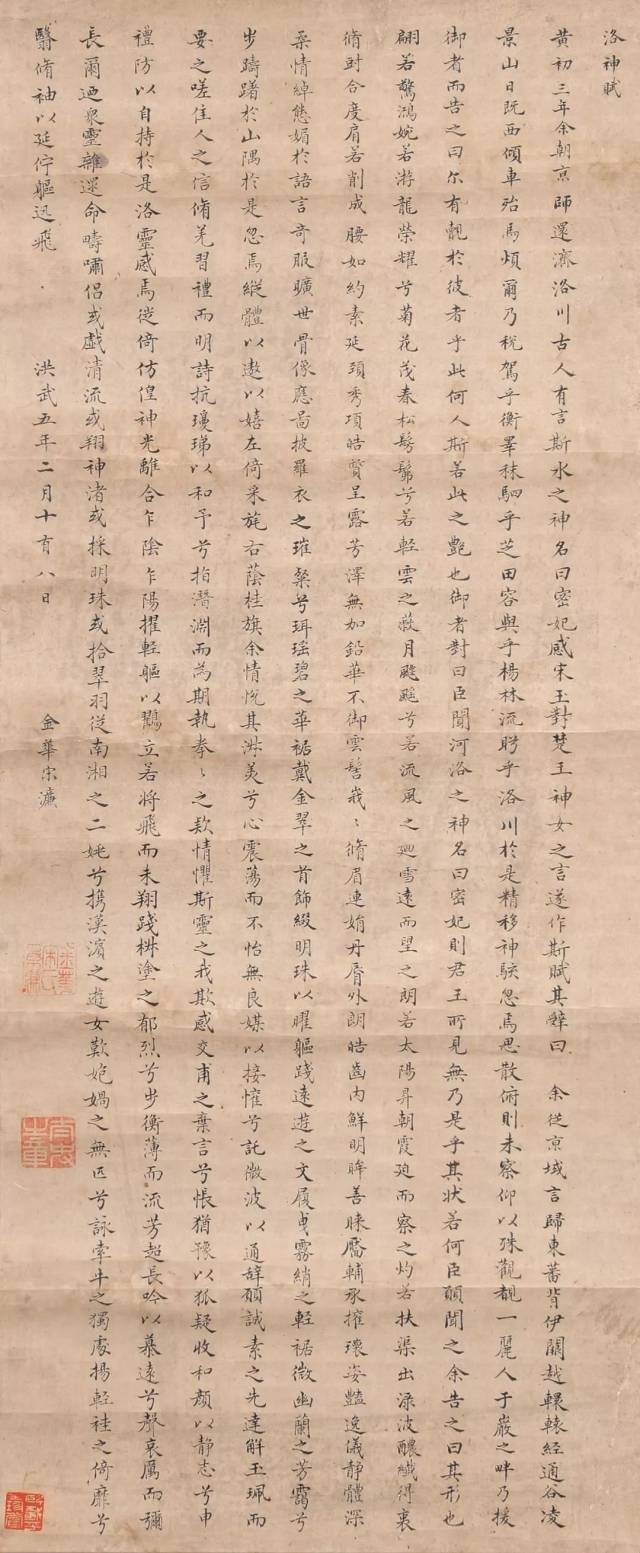 洛神賦
黃初三年余朝京師還濟洛川古人有言斯水之神名曰宓妃感宋玉對楚王神女之言遂作斯賦其辭曰 余從京域言歸東蕃背伊闕越轘轅經通谷凌
景山日既西傾車殆馬煩爾乃稅駕乎衡皋秣駟乎芝田容與乎楊林流眄乎洛川於是精移神駭忽焉思散俯則未察仰以殊觀覩一麗人于巖之畔乃援
御者而告之曰尔有覿於彼者乎此何人斯若此之艷也御者對曰臣聞河洛之神名曰宓妃則君王所見無乃是乎其狀若何臣願聞之余告之曰其形也
翩若驚鴻婉若游龍榮耀兮菊花茂春松髣髴兮若輕雲之蔽月飈飈兮若流風之廻雪遠而望之朗若太陽昇朝霞迫而察之灼若扶渠出淥波醲纖得裏
脩尌合度肩若削成腰如約素延頸秀項皓質呈露芳澤無加鉛華不御雲髻峩〻脩眉連娟丹脣外朗皓齒內鮮明眸善睞靨輔承摧瓌姿豔逸儀靜體深
柔情綽態媚於語言奇服曠世骨像應啚披羅衣之璀粲兮珥瑤碧之華裾戴金翠之首飾綴明珠以曜軀踐遠遊之文履曳霧綃之輕裾微幽蘭之芳靄兮
步躊躇於山隅於是忽焉縱體以遨以嬉左倚采旄右蔭桂旗余情悅其淋美兮心震蕩而不怡無良媒以接懽兮託微波以通辭願誠素之先達解玉珮而
要之嗟佳人之信脩羌習禮而明詩抗瓊珶以和予兮指潛淵而為期執拳〻之欵情懼斯靈之我欺感交甫之棄言兮悵猶豫以狐疑收和顏以靜志兮申
禮防以自持於是洛靈感焉徙倚仿偟神光離合乍陰乍陽擢輕軀以鶴立若將飛而未翔踐椒塗之郁烈兮步衡薄而流芳超長吟以慕遠兮聲哀厲而彌
長爾廼衆靈雜遝命疇嘯侶或戲清流或翔神渚或採明珠或拾翠羽從南湘之二姚兮携漢濱之遊女歎匏媧之無匹兮詠牽牛之獨處揚輕袿之倚靡兮
翳脩袖以延佇軀迅飛 洪武五年二月十有八日 金華宋濂